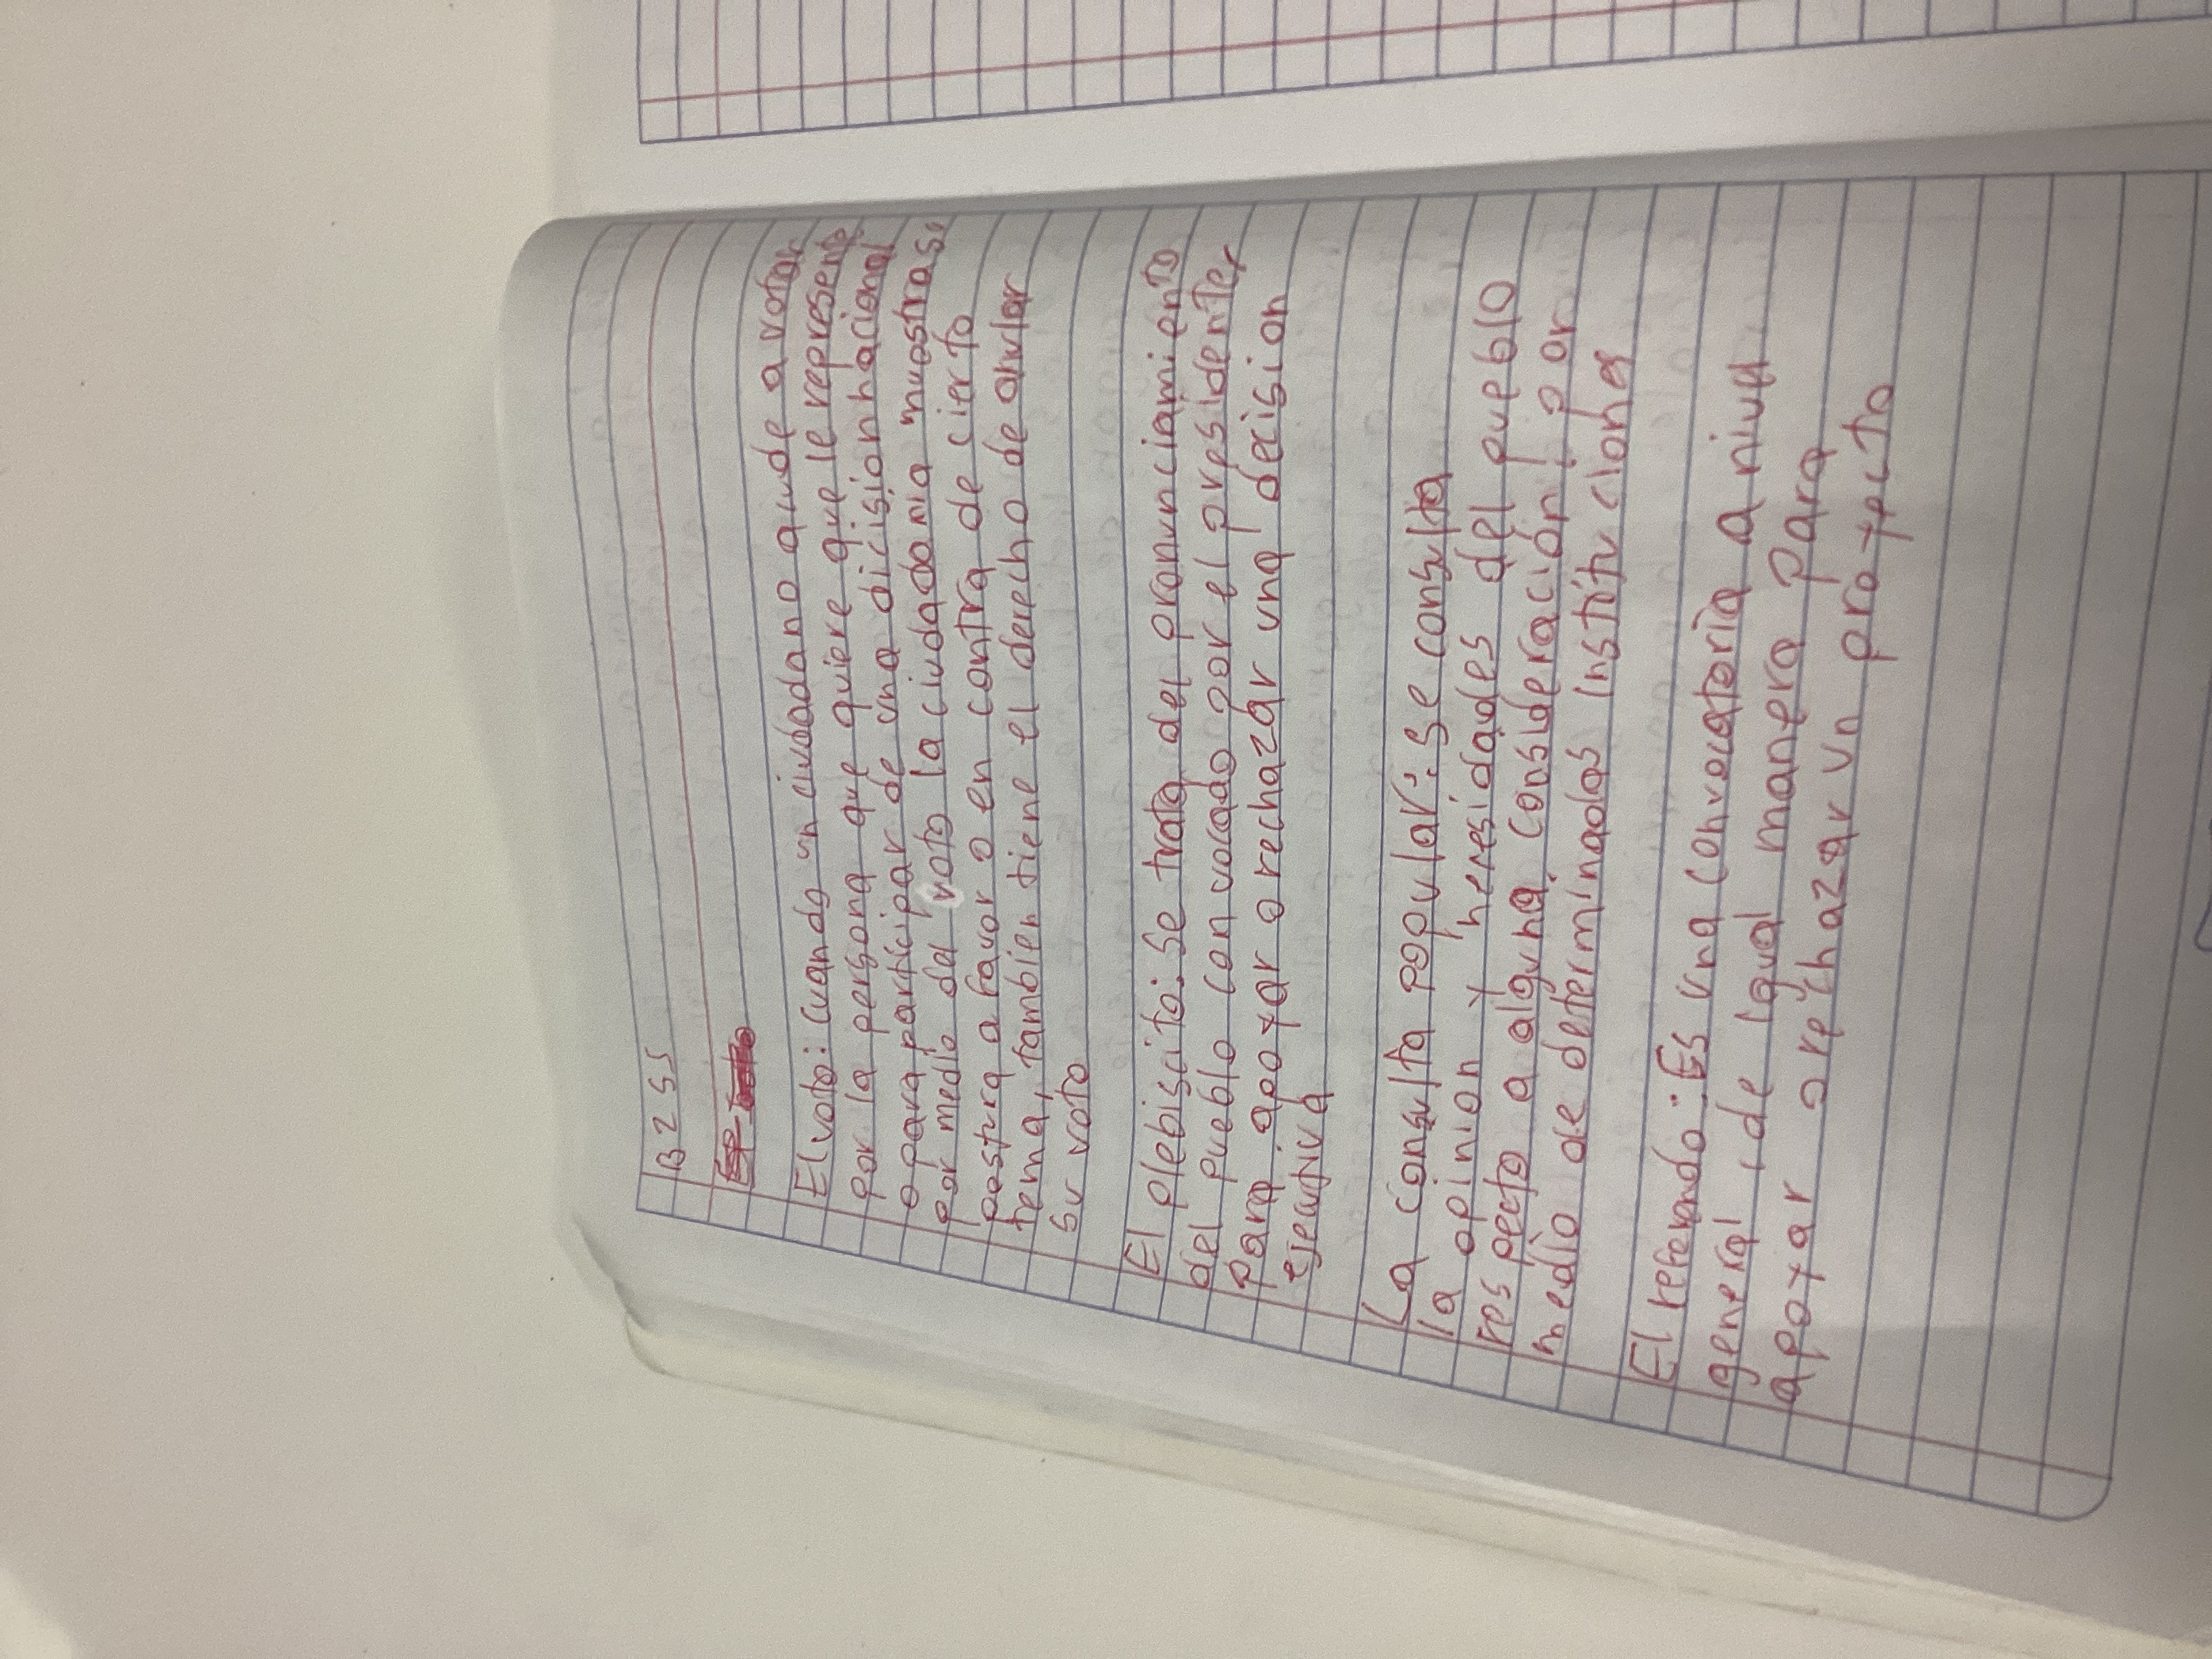 B 2 S S
El voto: cuando un ciudadano acude a votar
por la persona que quiere que le represente
o para participar de una dicision nacional
por medio del voto la ciudadania muestra su
postura a favor o en contra de cierto
tema, tambien tiene el derecho de anular
su voto
El plebiscito: Se trata del pronunciamiento
del pueblo convocado por el presidente,
para apoyar o rechazar una decision
ejecutiva
La consulta popular: se consulta
la opinion y necesidades del pueblo
respecto a alguna consideración por
medio de determinadas institucione
El referendo: Es una convocatoria a nivel
general, de igual manera para
apoyar o rechazar un proyecto